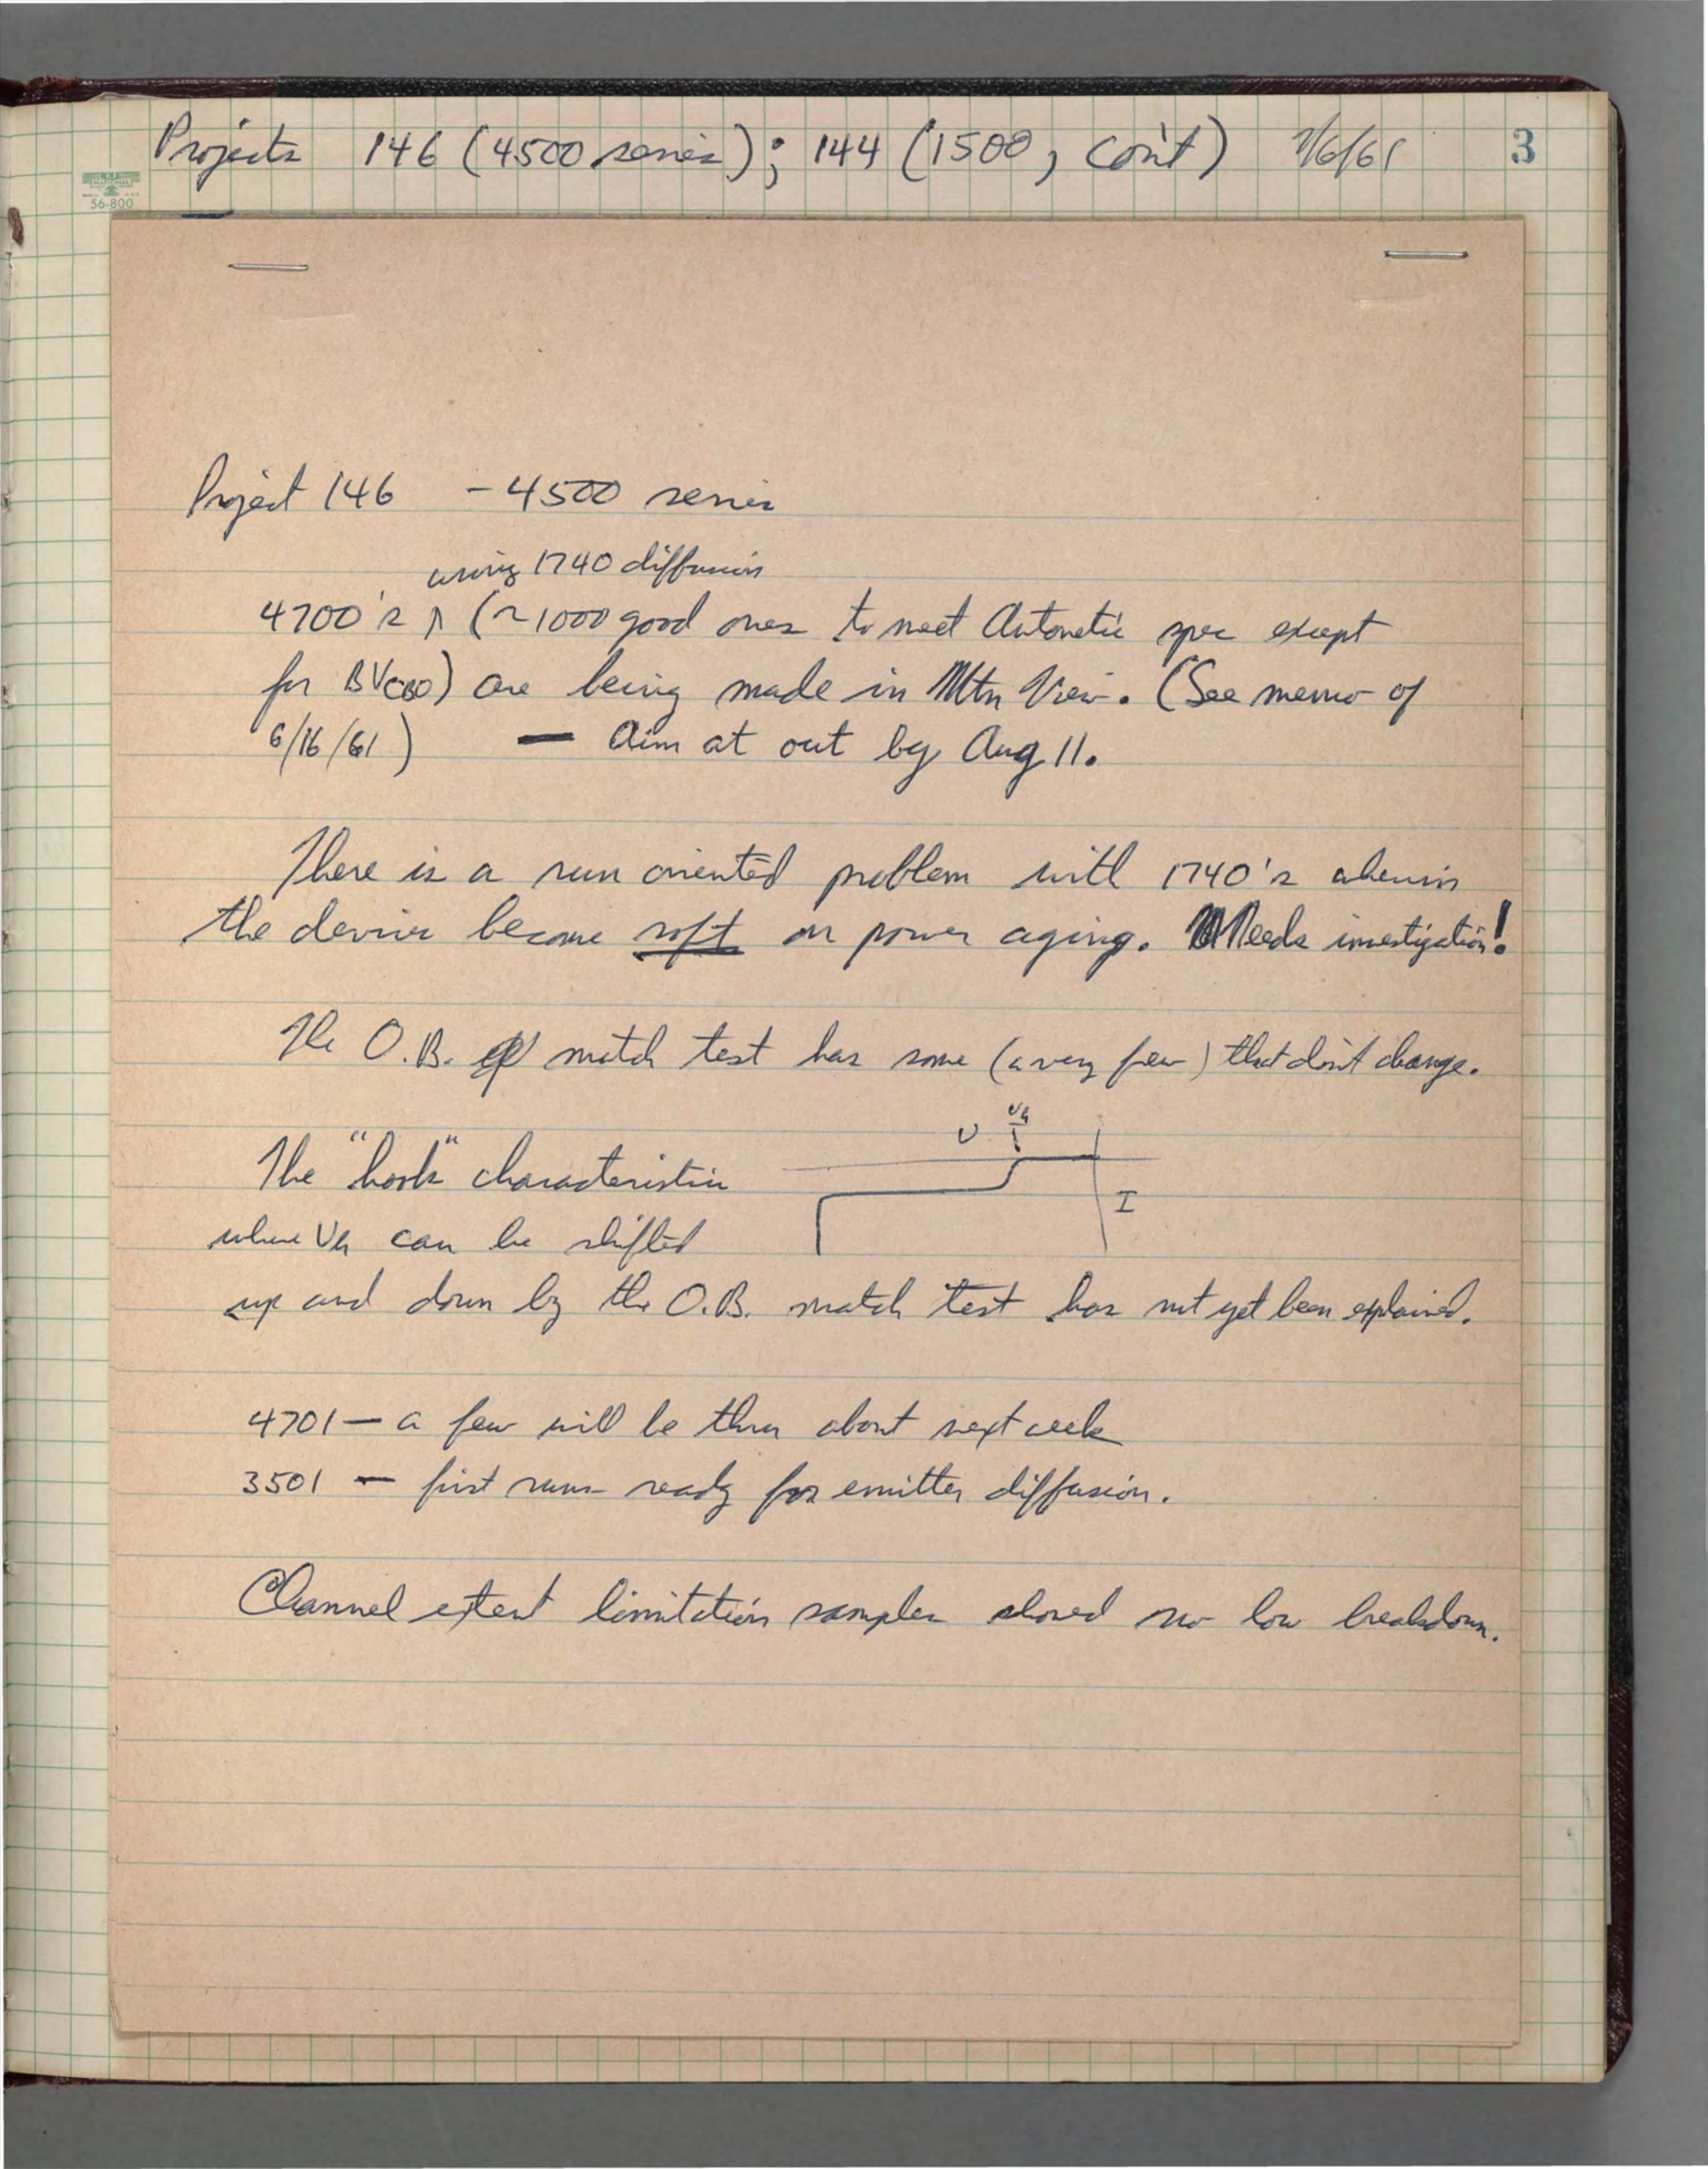 Projects 146 (4500 series); 144 (1500, con't) 7/6/61 3
NATIONAL
56-800
Project 146 - 4500 series
using 1740 diffusion
4700's ∧ (~1000 good ones to meet Autonetic spec except
for BVCBO) are being made in Mtn View. (See memo of
6/16/61) — Aim at out by Aug 11.
There is a run oriented problem with 1740's wherein
the device become soft on power aging. Needs investigation!
The O.B. match test has some (a very few) that don't change.
V Vh
The "hook" characteristic
I
where Vh can be shifted
up and down by the O.B. match test has not yet been explained.
4701 — a few will be thru about next week
3501 — first runs ready for emitter diffusion.
Channel extent limitation samples showed no low breakdown.